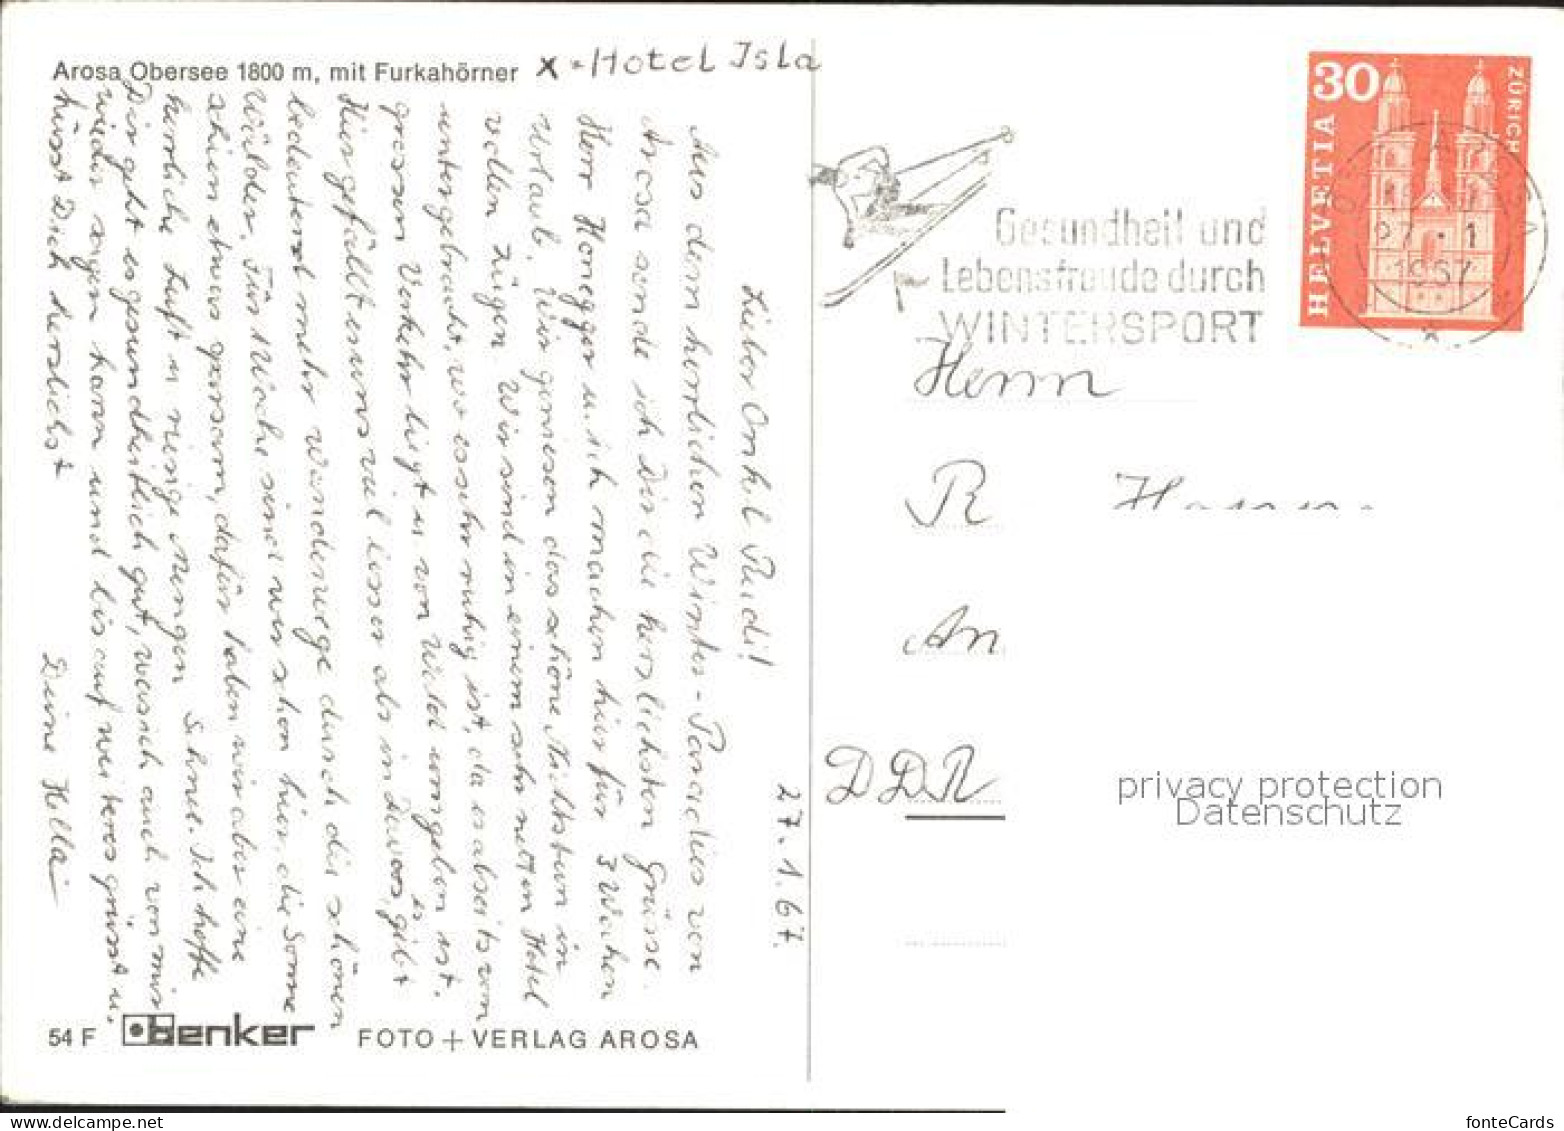 Arosa Obersee 1800 m, mit Furkahörner
x = Hotel Isla
27.1.67.
Lieber Onkel Rudi!
Aus dem herrlichen Winter-Paradies von
Arosa sende ich Dir die herzlichsten Grüsse.
Herr Honegger u. ich machen hier für 3 Wochen
Urlaub. Wir geniesen das schöne Nichtstun in
vollen Zügen. Wir sind in einem sehr netten Hotel
untergebracht, wo es sehr ruhig ist, da es abseits vom
grossen Verkehr liegt u. von Wald umgeben ist.
Hier gefällt es uns viel besser als in Davos, gibt es
bedeutend mehr Wanderwege durch die schönen
Wälder. Für 1 Woche sind wir schon hier, die Sonne
schien etwas sparsam, dafür haben wir aber eine
herrliche Luft u. riesige Mengen Schnee. Ich hoffe
Dir geht es gesundheitlich gut, was ich auch von mir
wieder sagen kann und bis auf weiteres grüsst u.
küsst Dich herzlichst
Deine Hella
54 F benker FOTO + VERLAG AROSA
Gesundheit und
Lebensfreude durch
WINTERSPORT
HELVETIA
30
ZÜRICH
27.-1
1967
Herrn
R
An
DDR
privacy protection
Datenschutz
fonteCards